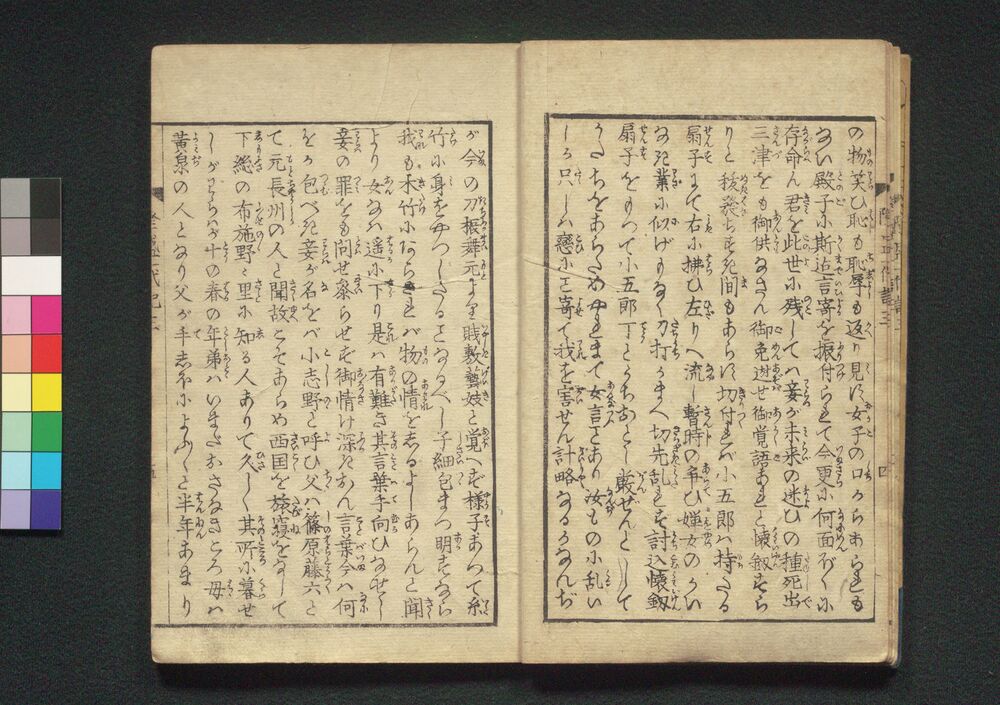 の物笑ひ恥も恥辱も返り見ず女子の口からあられも
ない殿子に斯迠言寄を振付られて今更に何面ぼくに
存命ん君を此世に残してハ妾が未来の迷ひの種死出
三津をも御供なさん御免遊せ御覚悟あれと懐劔すら
りと抜発ちすき間もあらに切付れバ小五郎ハ持たる
扇子にて右に拂ひ左りへ流し暫時の争ひ婬女のかい
なき業に似げもなく刀打かまへ切先乱れず討込懐釼
扇子をもつて小五郎丁とうちおとし蔽せんとして
かたちをあらため やれまて女言ことあり汝もの小乱い
しか只しハ戀にこと寄て我を害せん計略なるかなんぢ
が今の刀振舞元より賎敷藝妓と覚へず様子あつて糸
竹に身をやつしさることなるべし子細包まつ明すなら
我も木竹にならざれバ物の情を志るよしあらんと聞
より女なハ遥に下り是ハ有難き其言葉手向ひなせし
妾の罪をも問せ玉らせず御情け深きおん言葉今ハ何
をか包べき妾が名をバ小志野と呼び父ハ篠原藤六と
て元長州の人と聞故ことてあらや西国を旅寝をなして
下総の布施野と里に知る人ありて久しく其所に暮せ
しがわらハ十の春の年弟ハいまだおさなきころ母ハ
黄泉の人となり父が手志ほによふと半年あまり